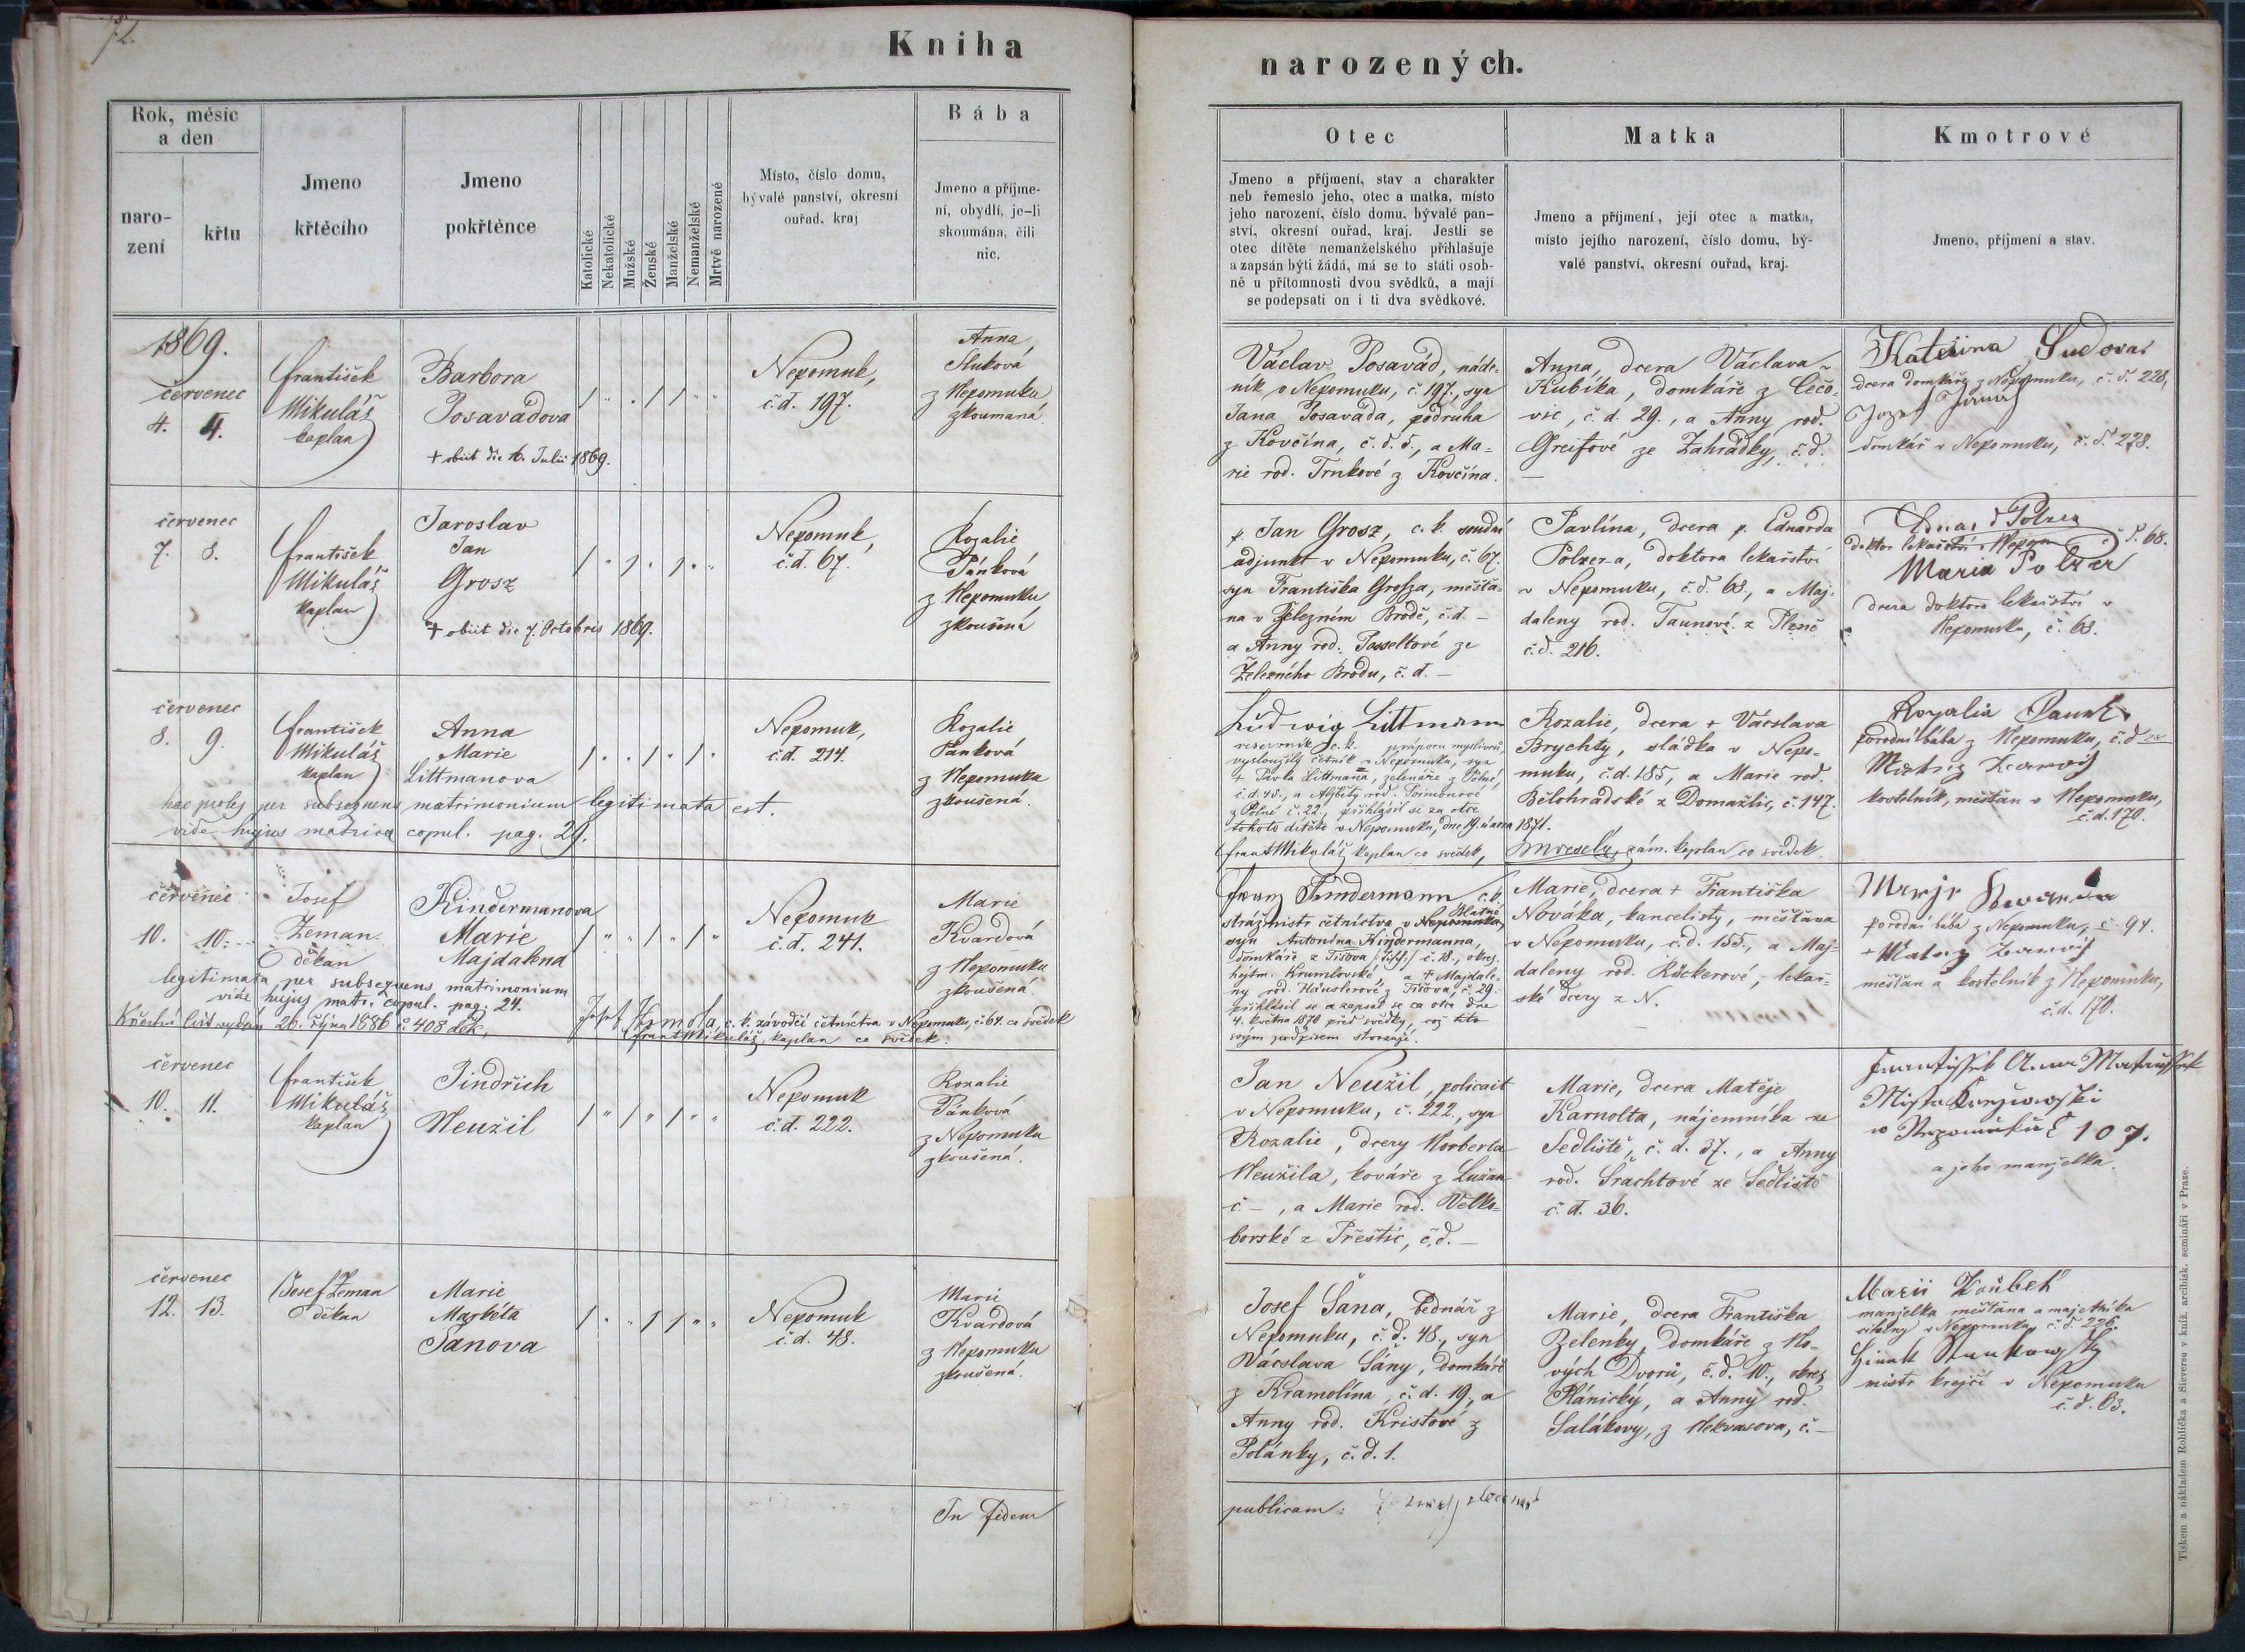 72.
Kniha
narozených.
Rok, měsíc
a den
naro-
zení
křtu
Jmeno
křtěcího
Jmeno
pokřtěnce
Katolické
Nekatolické
Mužské
Ženské
Manželské
Nemanželské
Mrtvě narozené
Místo, číslo domu,
bývalé panství, okresní
ouřad, kraj
Bába
Jmeno a příjme-
ní, obydlí, je-li
skoumána, čili
nic.
Otec
Jmeno a příjmení, stav a charakter
neb řemeslo jeho, otec a matka, místo
jeho narození, číslo domu, bývalé pan-
ství, okresní ouřad, kraj. Jestli se
otec dítěte nemanželského přihlašuje
a zapsán býti žádá, má se to státi osob-
ně u přítomnosti dvou svědků, a mají
se podepsati on i ti dva svědkové.
Matka
Jmeno a příjmení, její otec a matka,
místo jejího narození, číslo domu, bý-
valé panství, okresní ouřad, kraj.
Kmotrové
Jmeno, příjmení a stav.
1869.
červenec
4. 4.
František
Mikuláš
kaplan
Barbora
Posavádova
+ obiit die 16. Julii 1869.
Nepomuk,
č.d. 197.
Anna
Sluková
z Nepomuku
zkoumaná.
Václav Posavád, náde-
ník v Nepomuku, č. 197., syn
Jana Posaváda, podruha
z Kovčína, č. d. 5., a Ma-
rie rod. Trnkové z Kovčína.
Anna, dcera Václava
Kubíka, domkáře z Čečo-
vic, č. d. 29., a Anny rod.
Greifové ze Zahrádky, č.d.
—
Kateřina
dcera domkáře z Nepomuku, č. d. 228,
Jozef
domkář v Nepomuku, č. d. 228.
červenec
7. 8.
František
Mikuláš
kaplan
Jaroslav
Jan
Grosz
+ obiit die 7. Octobris 1869.
Nepomuk,
č.d. 67.
Rozalie
Pánková
z Nepomuku
zkoušená
p. Jan Grosz, c. k. soudní
adjunkt v Nepomuku, č. 67.
syn Františka Grosza, měšťa-
na v Železném Brodě, č.d. —
a Anny rod. Josseltové ze
Železného Brodu, č. d. —
Pavlína, dcera p. Eduarda
Polzer-a, doktora lekařství
v Nepomuku, č. d. 68., a Maj-
daleny rod. Taunové z Plzně
č.d. 216.
Eduard Polzer
doktor lekařství v Nepom. č. d. 68.
Maria Polzer
dcera doktora lekařství v
Nepomuku, č. 68.
červenec
8. 9.
František
Mikuláš
kaplan
Anna
Marie
Littmanova
Nepomuk,
č.d. 214.
Rozalie
Pánková
z Nepomuka
zkoušená.
haec proles per subsequens matrimonium legitimata est.
vide hujus matrica copul. pag. 29.
Ludwig Littmann
reservník c. k. práporu myslivců,
vysloužilý četník v Nepomuku, syn
+ Pavla Littmana, zelenáře z Polné,
č.d. 48., a Alžběty rod. Šimonové
z Polné č. 22., přihlásil se za otce
tohoto dítěte v Nepomuku, dne 19. února 1871.
Frant Mikuláš kaplan co svědek,
Rozalie, dcera + Vácslava
Brychty, sládka v Nepo-
muku, č.d. 185, a Marie rod.
Bělohradské z Domažlic, č. 147.
zám. kaplan co svědek.
Rozalia Pánek
porodní bába z Nepomuku, č.d.
kostelník, měšťan v Nepomuku,
č.d. 170.
červenec
10. 10.
Josef
Zeman
děkan
Kindermanova
Marie
Majdalena
Nepomuk
č.d. 241.
Marie
Kvardová
z Nepomuku
zkoušená.
legitimata per subsequens matrimonium
vide hujus matr. copul. pag. 24.
Křestní list vydán 26. října 1886 č. 408 děk.
Josef Homola, c. k. závodčí četnictva v Nepomuku, č. 64. co svědek
Frant Mikuláš, kaplan co svědek.
Franz Kindermann c. k.
strážmistr četnictva v Nepomuku, Blatné
syn Antonína Kindermanna,
domkáře z Tisova /Tiss./ č. 18., okres.
hejtm. Krumlovské a + Majdale-
ny rod. Häuslerové z Tisova, č. 29.
přihlásil se a zapsal se co otec dne
4. května 1870 před svědky, což tito
svým podpisem stvrzují.
Marie, dcera + Františka
Nováka, kancelisty, měšťana
v Nepomuku, č.d. 155., a Maj-
daleny rod. Rückerové, lekař-
ské dcery z N.
porodní bába z Nepomuku, č. 94.
měšťan a kostelník z Nepomuku,
č.d. 170.
červenec
10. 11.
František
Mikuláš
kaplan
Jindřich
Neužil
Nepomuk
č.d. 222.
Rozalie
Pánková
z Nepomuku
zkoušená.
Jan Neužil, policait
v Nepomuku, č. 222., syn
Rozalie, dcery Norberta
Neužila, kováře z Lužan
č. —, a Marie rod. Velko-
borské z Přeštic, č.d. —
Marie, dcera Matěje
Karnolta, nájemníka ze
Sedliště, č. d. 37., a Anny
rod. Šrachtové ze Sedliště
č. d. 36.
č 107.
a jeho manželka.
červenec
12. 13.
Josef Zeman
děkan
Marie
Markéta
Šanova
Nepomuk
č.d. 48.
Marie
Kvardová
z Nepomuku
zkoušená.
Josef Šana, bednář z
Nepomuku, č. d. 48., syn
Vácslava Šány, domkáře
z Kramolína, č. d. 19, a
Anny rod. Kristové z
Polánky, č. d. 1.
Marie, dcera Františka
Zelenky, domkáře z No-
vých Dvorů, č. d. 10., okres
Plánický, a Anny rod.
Salákovy, z Nekvasova, č. —
Marii Koubek
manželka měšťana a majetníka
cihelny v Nepomuku, č. d. 226.
mistr krejčí v Nepomuku
č. d. 63.
In fidem
publicam:
Tiskem a nákladem Rohlíčka a Sieversa v kníž. archibisk. semináři v Praze.